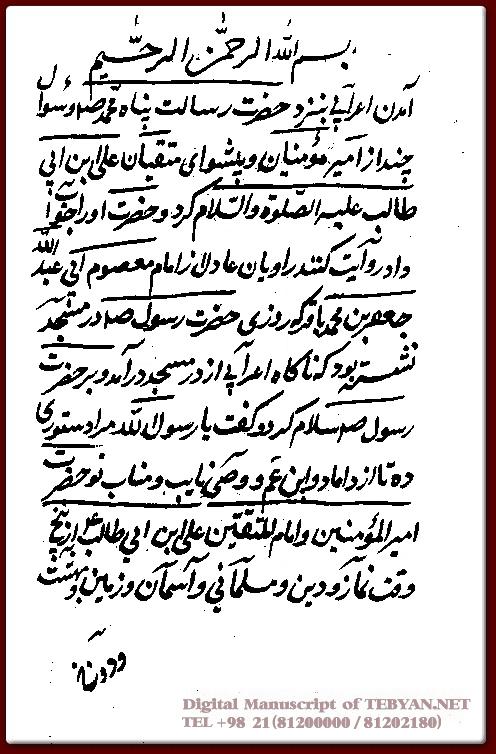 بسم الله الرحمن الرحیم
آمدن اعرابی بنزد حضرت رسالت پناه محمد ص و سؤال
چند از امیر مؤمنان و پیشوای متقیان علی ابن ابی
طالب علیه الصلوة والسلام کرد و حضرت او را جواب
داد روایت کنند راویان عادل از امام معصوم ابی عبد الله
جعفر بن محمد باقر که روزی حضرت رسول ص در مسجد
نشسته بود که ناگاه اعرابی از در مسجد درآمد و بر حضرت
رسول ص سلام کرد و گفت یا رسول الله مرا دستوری
ده تا از داماد و ابن عم و وصی و نایب و مناب تو حضرت
امیر المؤمنین و امام المتقین علی ابن ابی طالب ع از پنج
وقت نماز و دین و مسلمانی و آسمان و زمین و بهشت
و دوزخ
Digital Manuscript of TEBYAN.NET
TEL +98 21(81200000 / 81202180)